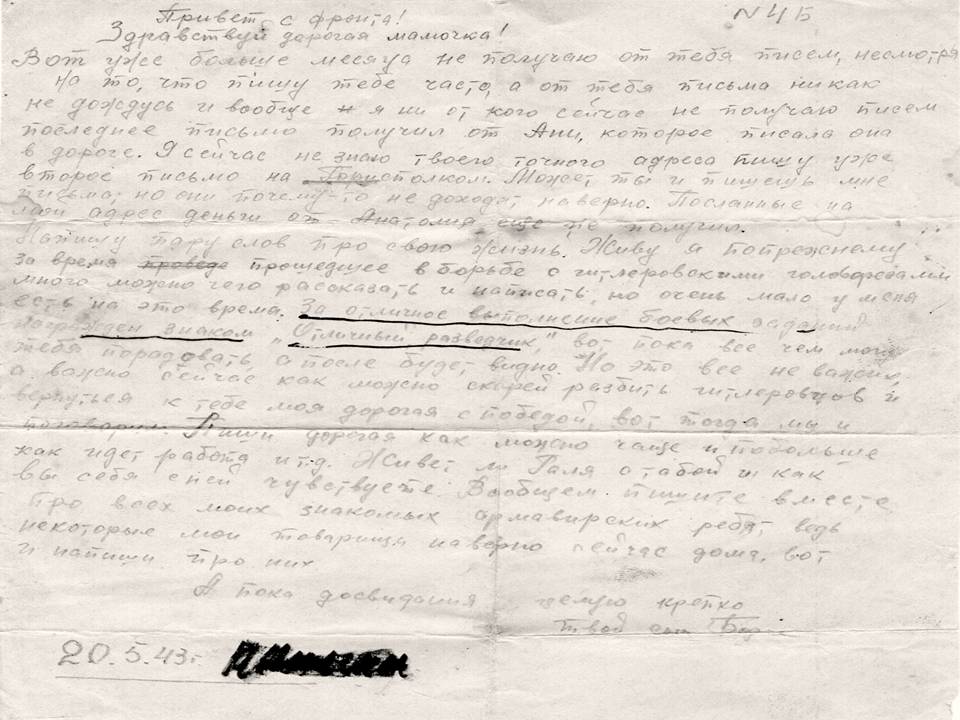 Привет с фронта! N 4 Б
Здравствуй дорогая мамочка!
Вот уже больше месяца не получаю от тебя писем, несмотря
на то, что пишу тебе часто, а от тебя письма никак
не дождусь и вообще я ни от кого сейчас не получаю писем
последнее письмо получил от Ани, которое писала она
в дороге. Я сейчас не знаю твоего точного адреса пишу уже
второе письмо на исполком. Может ты и пишешь мне
письма, но они почему-то не доходят наверно. Посланные на
мой адрес деньги от Анатолия еще не получил.
Напишу пару слов про свою жизнь. Живу я попрежнему
за время прошедшее в борьбе с гитлеровскими головорезами
много можно чего рассказать и написать, но очень мало у меня
есть на это время. За отличное выполнение боевых заданий
награжден знаком „Отличный разведчик," вот пока все чем могу
тебя порадовать, а после будет видно. Но это все не важно,
а важно сейчас как можно скорей разбить гитлеровцов и
вернуться к тебе моя дорогая с победой, вот тогда мы и
поговорим. Пиши дорогая как можно чаще и побольше
как идет работа и т.д. Живет ли Галя с табой и как
вы себя с ней чувствуете. Вообщем пишите вместе
про всех моих знакомых армавирских ребят, ведь
некоторые мои товарищи наверно сейчас дома, вот
и напиши про них
А пока досвидания целую крепко
твой сын
20.5.43г.